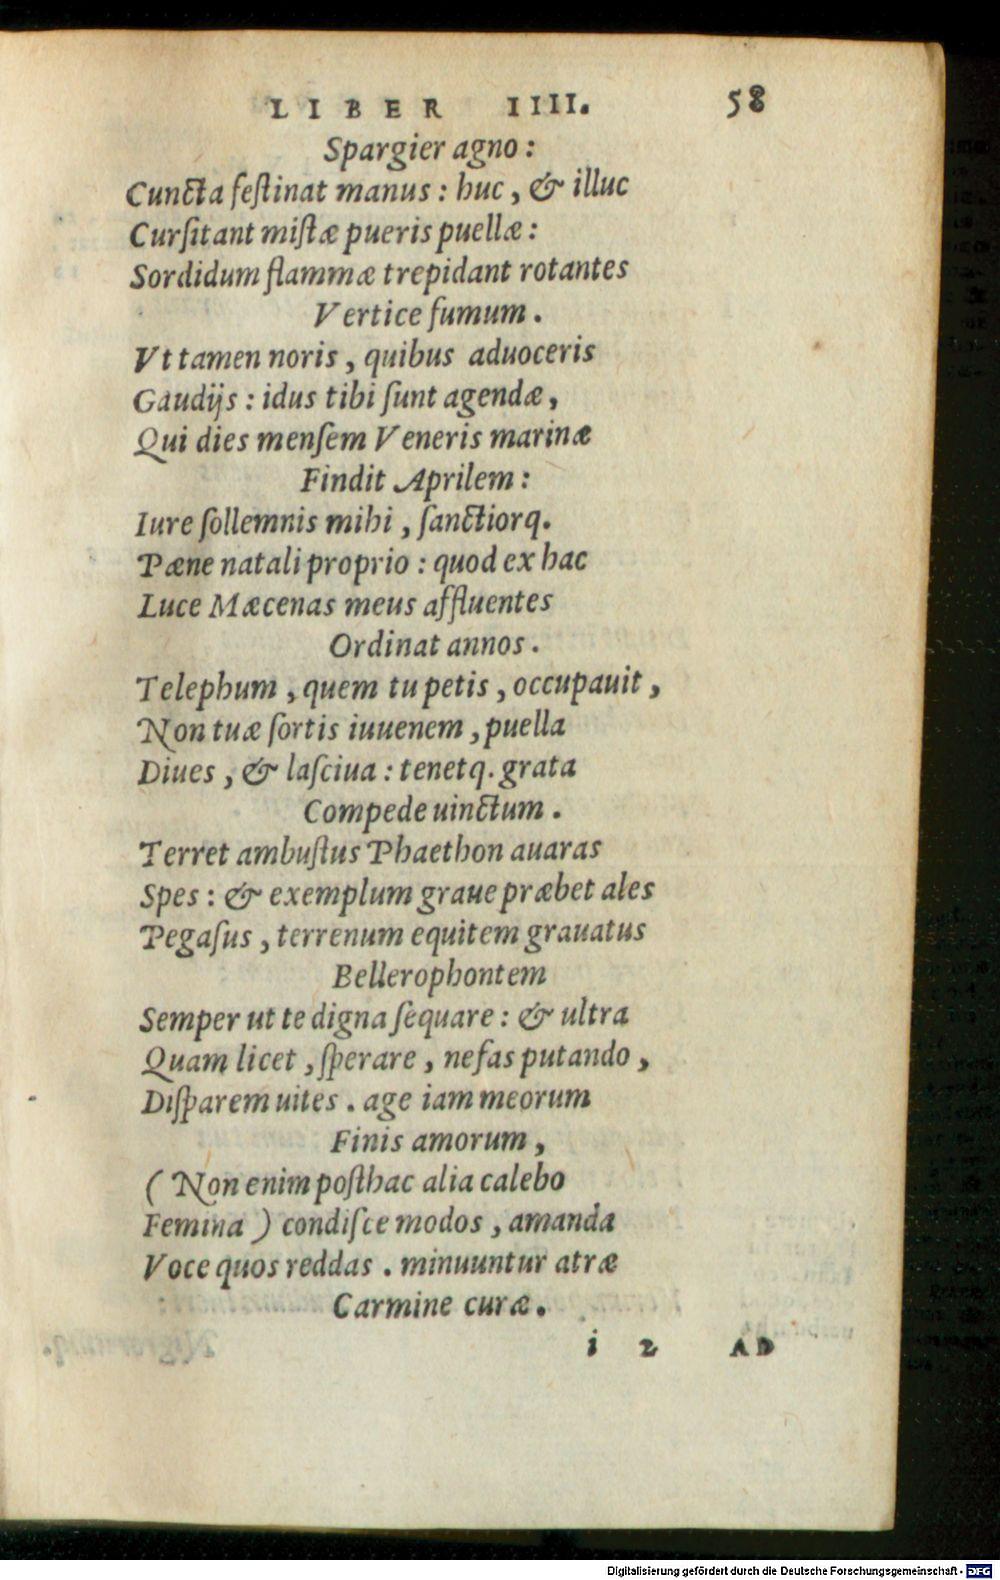 LIBER IIII. 58
Spargier agno:
Cuncta festinat manus: huc, & illuc
Cursitant mistæ pueris puellæ:
Sordidum flammæ trepidant rotantes
Vertice fumum.
Vt tamen noris, quibus aduoceris
Gaudijs: idus tibi sunt agendæ,
Qui dies mensem Veneris marinæ
Findit Aprilem:
Iure sollemnis mihi, sanctiorq.
Pæne natali proprio: quod ex hac
Luce Mæcenas meus affluentes
Ordinat annos.
Telephum, quem tu petis, occupauit,
Non tuæ sortis iuuenem, puella
Diues, & lasciua: tenetq. grata
Compede uinctum.
Terret ambustus Phaethon auaras
Spes: & exemplum graue præbet ales
Pegasus, terrenum equitem grauatus
Bellerophontem
Semper ut te digna sequare: & ultra
Quam licet, sperare, nefas putando,
Disparem uites. age iam meorum
Finis amorum,
(Non enim posthac alia calebo
Femina) condisce modos, amanda
Voce quos reddas. minuuntur atræ
Carmine curæ.
i 2 AD
Digitalisierung gefördert durch die Deutsche Forschungsgemeinschaft - DFG